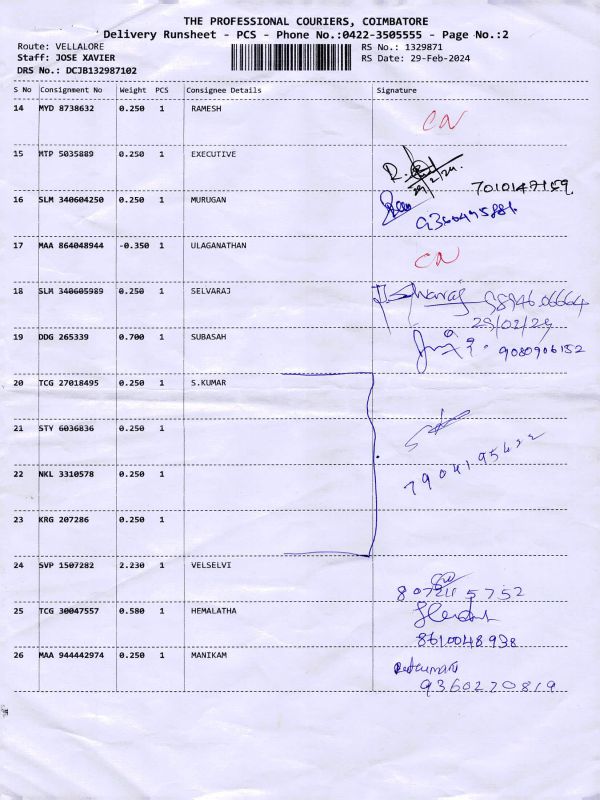 THE PROFESSIONAL COURIERS, COIMBATORE
Delivery Runsheet - PCS - Phone No.:0422-3505555 - Page No.:2
Route: VELLALORE RS No.: 1329871
Staff: JOSE XAVIER RS Date: 29-Feb-2024
DRS No.: DCJB132987102
S No Consignment No Weight PCS Consignee Details Signature
14 MYD 8738632 0.250 1 RAMESH CN
15 MTP 5035889 0.250 1 EXECUTIVE
29/2/24
7010147159
16 SLM 340604250 0.250 1 MURUGAN
17 MAA 864048944 -0.350 1 ULAGANATHAN CN
18 SLM 340605989 0.250 1 SELVARAJ 98946.06664
29/02/24
19 DDG 265339 0.700 1 SUBASAH 9080906152
20 TCG 27018495 0.250 1 S.KUMAR
21 STY 6036836 0.250 1
22 NKL 3310578 0.250 1
23 KRG 207286 0.250 1
24 SVP 1507282 2.230 1 VELSELVI
25 TCG 30047557 0.580 1 HEMALATHA
8610048938
26 MAA 944442974 0.250 1 MANIKAM
9360270819